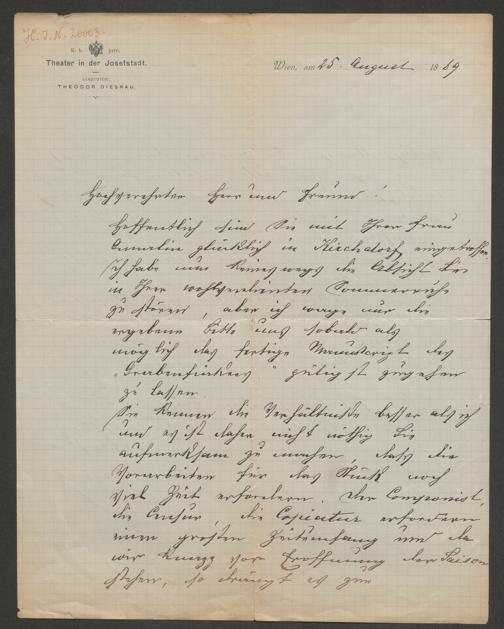 H. I. N. 20003.
K. k. priv.
Theater in der Josefstadt.
DIRECTION:
THEODOR GIESRAU.
Wien, am 25. August 1889
Hochverehrter Herr und Freund!
Hoffentlich sind Sie mit Ihrer Frau
Gemalin glücklich in Kirchdorf eingetroffen
Ich habe nun keineswegs die Absicht Sie
in Ihrer wohlverdienten Sommerruhe
zu stören, aber ich wage nur die
ergebene Bitte uns sobald als
möglich das fertige Manuscript des
" gütigst zugehen
zu lassen.
Sie kennen die Verhältnisse besser als ich
und es ist daher nicht nöthig Sie
aufmerksam zu machen, dass die
Vorarbeiten für das Stück noch
viel Zeit erfordern. Der Componist,
die Censur, die Copiatur erfordern
einen grossen Zeitumfang und da
wir knapp vor Eröffnung der Saison
stehen, so drängt es zur